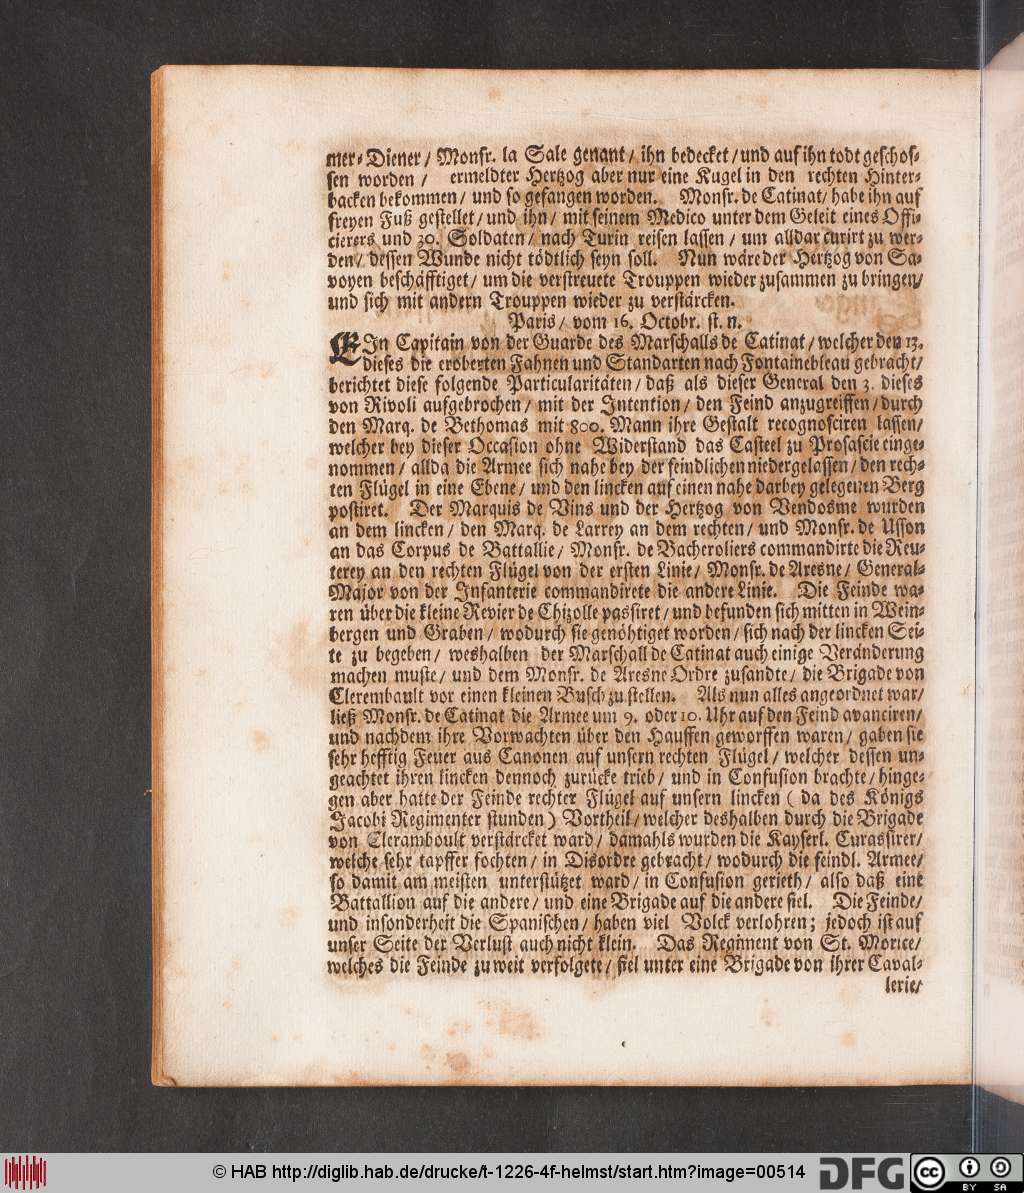 mer-Diener / Monsr. la Sale genant / ihn bedecket / und auf ihn todt geschos-
sen worden / ermeldter Hertzog aber nur eine Kugel in den rechten Hinter-
backen bekommen / und so gefangen worden. Monsr. de Catinat / habe ihn auf
freyen Fuß gestellet / und ihn / mit seinem Medico unter dem Geleit eines Offi-
cierers und 30. Soldaten / nach Turin reisen lassen / um alldar curirt zu wer-
den / dessen Wunde nicht tödtlich seyn soll. Nun wäre der Hertzog von Sa-
voyen beschäfftiget / um die verstreuete Trouppen wieder zusammen zu bringen /
und sich mit andern Trouppen wieder zu verstärcken.
Paris / vom 16. Octobr. st. n.
EIn Capitain von der Guarde des Marschalls de Catinat / welcher den 13.
dieses die eroberten Fahnen und Standarten nach Fontainebleau gebracht /
berichtet diese folgende Particularitäten / daß als dieser General den 3. dieses
von Rivoli aufgebrochen / mit der Intention / den Feind anzugreiffen / durch
den Marq. de Bethomas mit 800. Mann ihre Gestalt recognosciren lassen /
welcher bey dieser Occasion ohne Widerstand das Casteel zu Prosascie einge-
nommen / allda die Armee sich nahe bey der feindlichen niedergelassen / den rech-
ten Flügel in eine Ebene / und den lincken auf einen nahe darbey gelegenen Berg
postiret. Der Marquis de Vins und der Hertzog von Vendosme wurden
an dem lincken / den Marq. de Larrey an dem rechten / und Monsr. de Usson
an das Corpus de Battallie / Monsr. de Bacheroliers commandirte die Reu-
terey an den rechten Flügel von der ersten Linie / Monsr. de Aresne / General-
Major von der Infanterie commandirete die andere Linie. Die Feinde wa-
ren über die kleine Revier de Chizolle passiret / und befunden sich mitten in Wein-
bergen und Graben / wodurch sie genöhtiget worden / sich nach der lincken Sei-
te zu begeben / weshalben der Marschall de Catinat auch einige Veränderung
machen muste / und dem Monsr. de Aresne Ordre zusandte / die Brigade von
Clerembault vor einen kleinen Busch zu stellen. Als nun alles angeordnet war /
ließ Monsr. de Catinat die Armee um 9. oder 10. Uhr auf den Feind avanciren /
und nachdem ihre Vorwachten über den Hauffen geworffen waren / gaben sie
sehr hefftig Feuer aus Canonen auf unsern rechten Flügel / welcher dessen un-
geachtet ihren lincken dennoch zurücke trieb / und in Confusion brachte / hinge-
gen aber hatte der Feinde rechter Flügel auf unsern lincken ( da des Königs
Jacobi Regimenter stunden ) Vortheil / welcher deshalben durch die Brigade
von Cleramboult verstärcket ward / damahls wurden die Kayserl. Curassirer /
welche sehr tapffer fochten / in Disordre gebracht / wodurch die feindl. Armee /
so damit am meisten unterstützet ward / in Confusion gerieth / also daß eine
Battallion auf die andere / und eine Brigade auf die andere fiel. Die Feinde /
und insonderheit die Spanischen / haben viel Volck verlohren ; jedoch ist auf
unser Seite der Verlust auch nicht klein. Das Regiment von St. Morice /
welches die Feinde zu weit verfolgete / fiel unter eine Brigade von ihrer Caval-
lerie /
© HAB http://diglib.hab.de/drucke/t-1226-4f-helmst/start.htm?image=00514
DFG cc BY SA